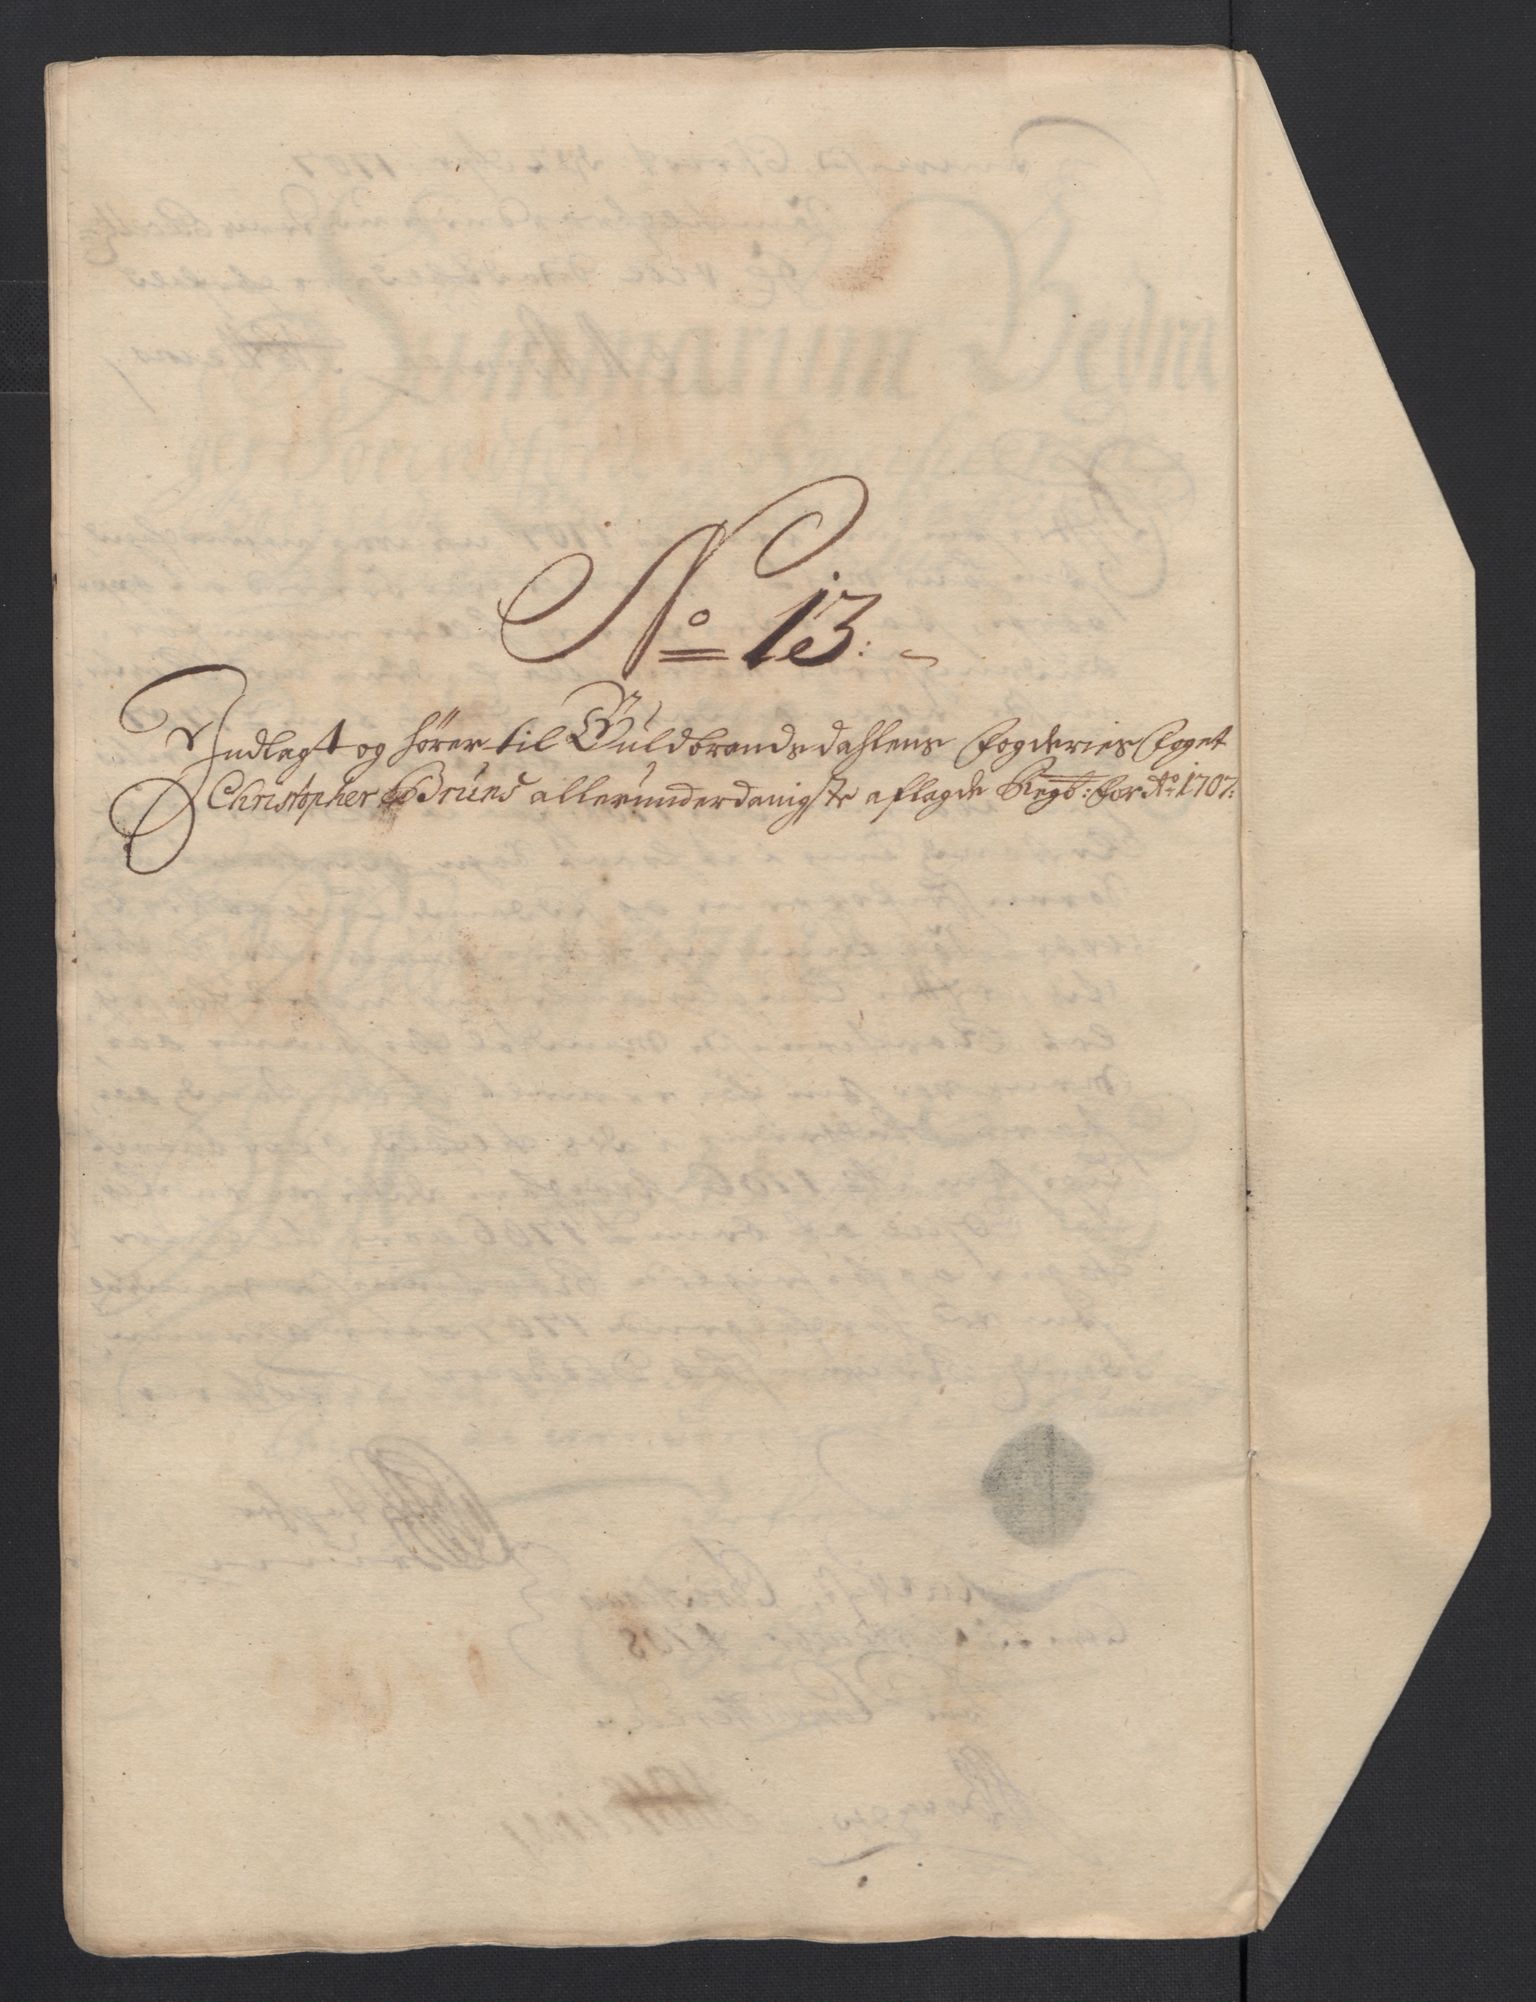 No 13.
Indlagt og hörer til Guldbrandsdahlens Fogderies
Christopher Bruns allerunderdanigste aflagde Regb: for Ao. 1707: